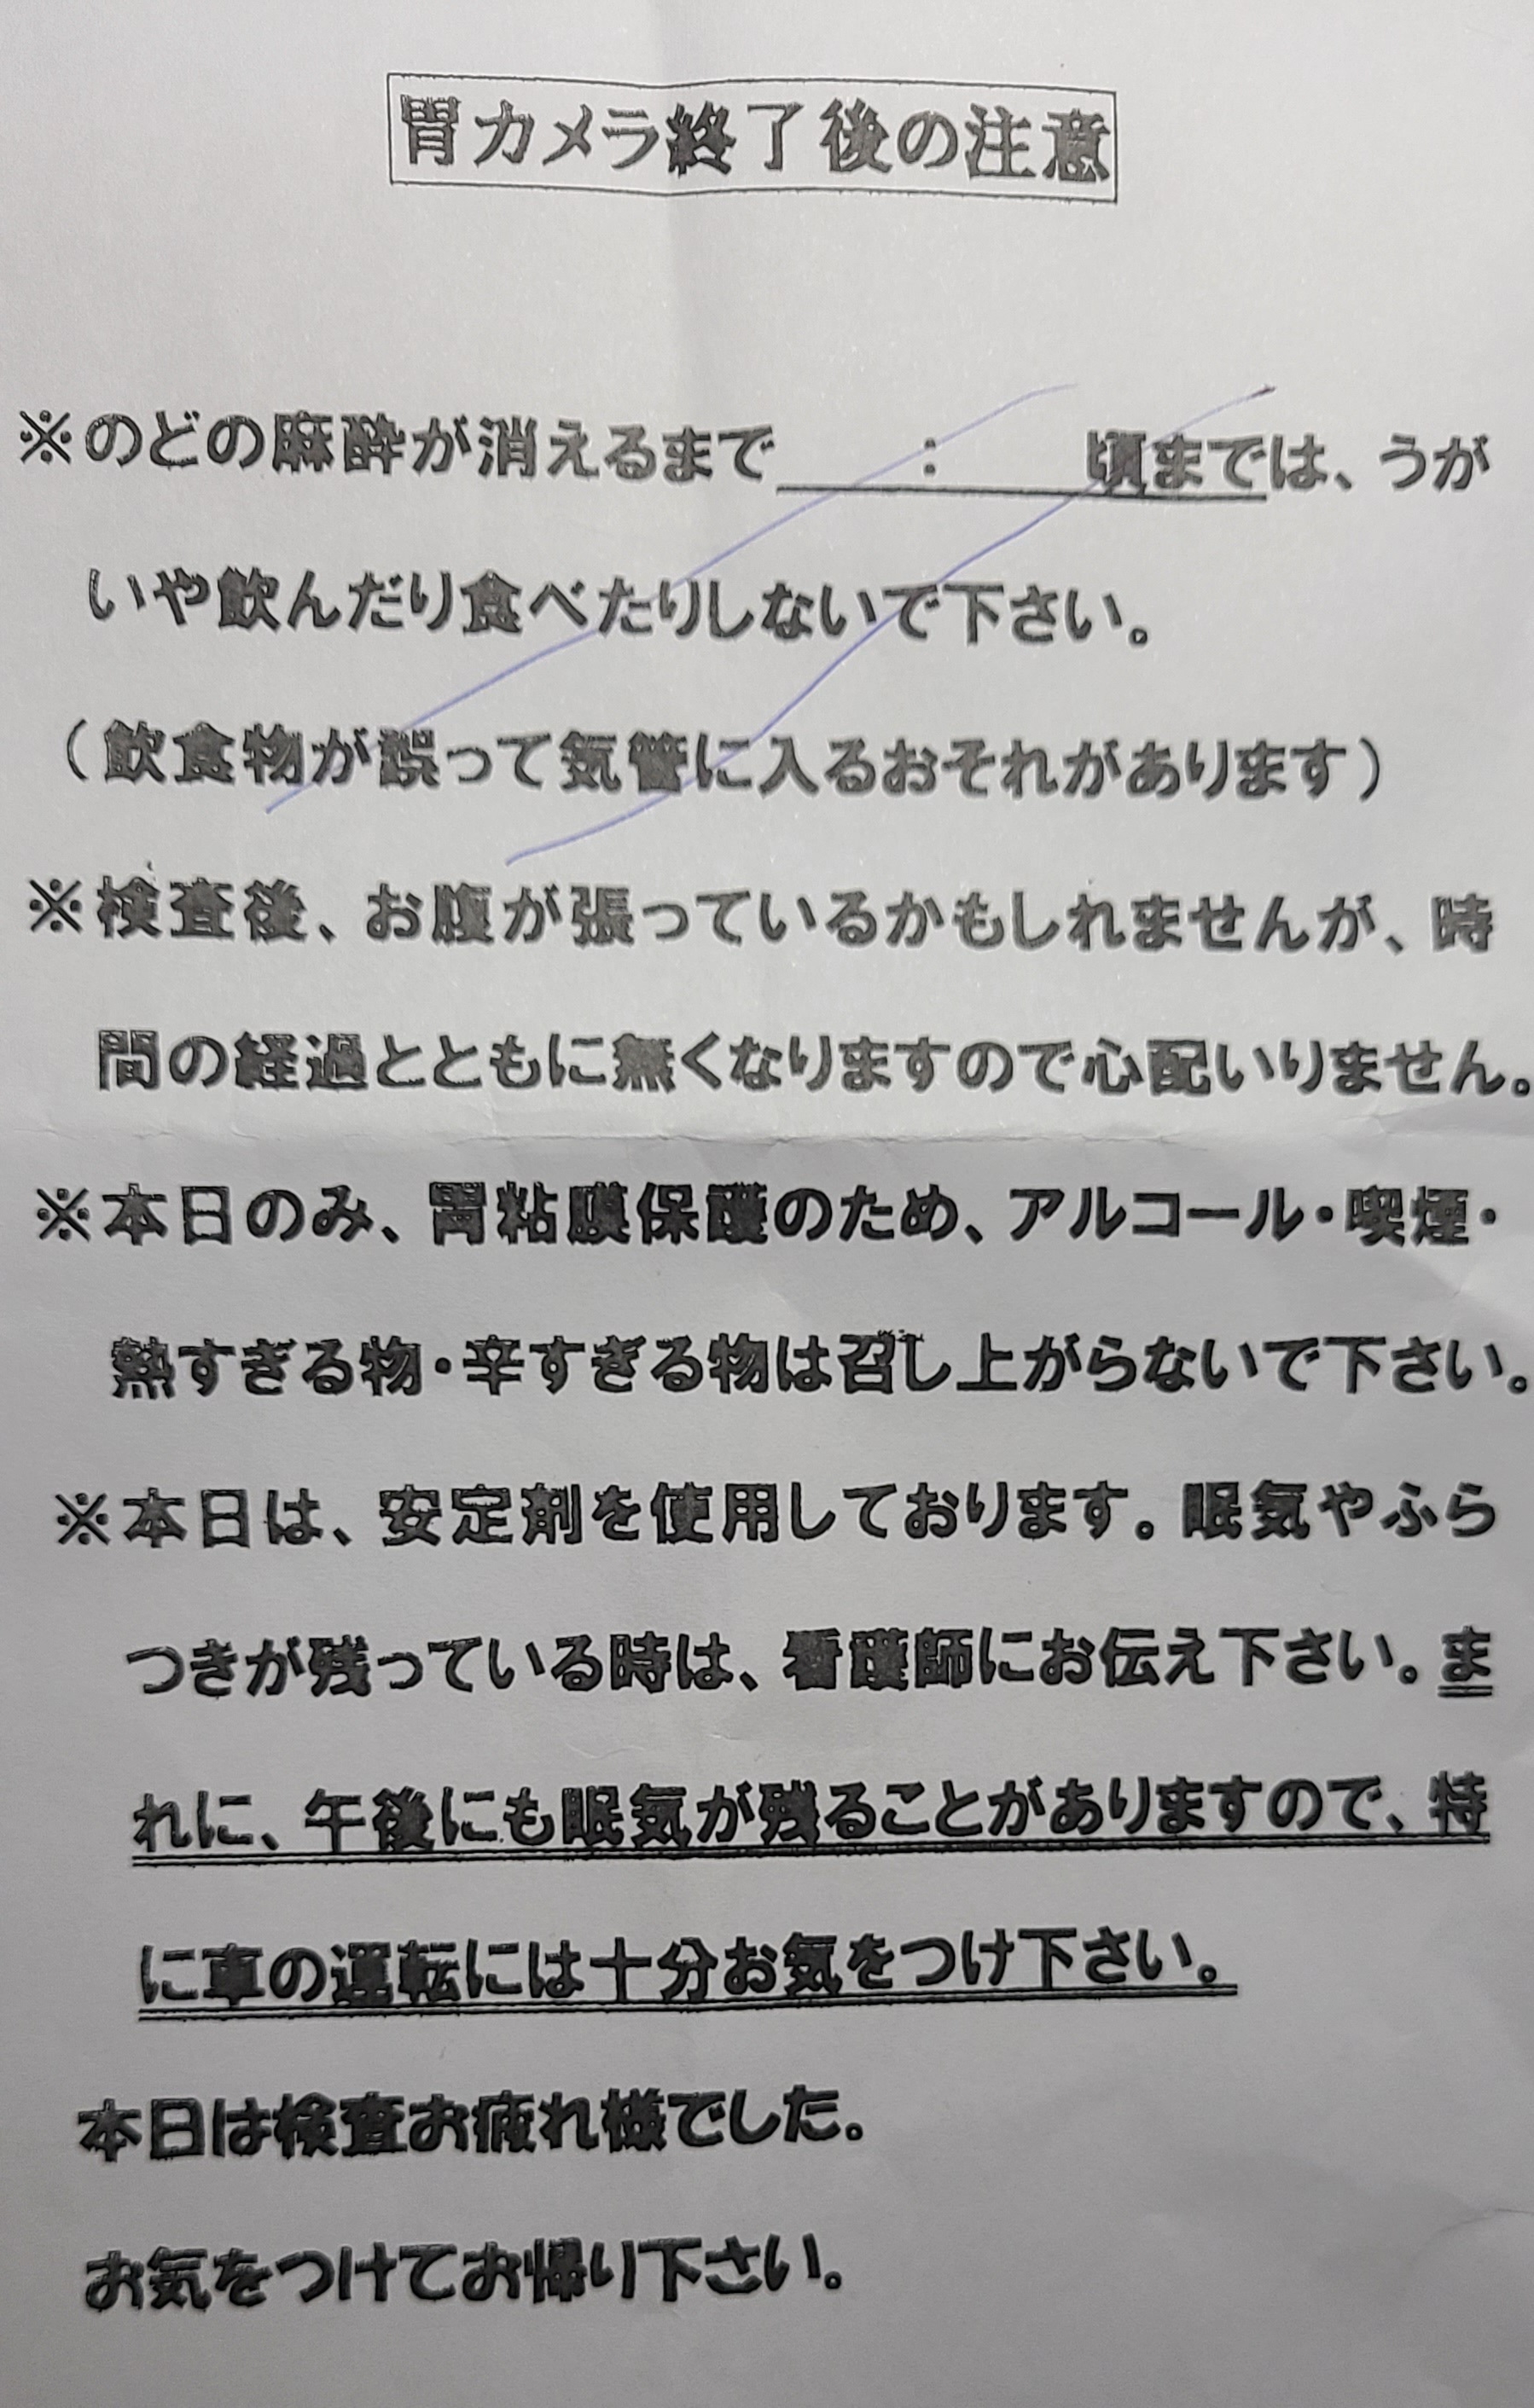 胃カメラ終了後の注意
※のどの麻酔が消えるまで　　：　　頃までは、うが
いや飲んだり食べたりしないで下さい。
（飲食物が誤って気管に入るおそれがあります）
※検査後、お腹が張っているかもしれませんが、時
間の経過とともに無くなりますので心配いりません。
※本日のみ、胃粘膜保護のため、アルコール・喫煙・
熱すぎる物・辛すぎる物は召し上がらないで下さい。
※本日は、安定剤を使用しております。眠気やふら
つきが残っている時は、看護師にお伝え下さい。ま
れに、午後にも眠気が残ることがありますので、特
に車の運転には十分お気をつけ下さい。
本日は検査お疲れ様でした。
お気をつけてお帰り下さい。